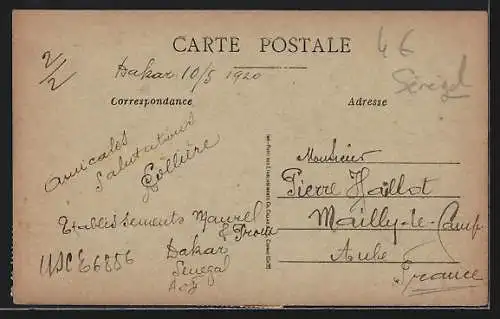 2/2
CARTE POSTALE
4 €
Sénégal
Dakar 10/5 1920
Correspondance
Adresse
Amicales
Salutations
Monsieur
Pierre Haillot
Mailly-le-Camp
Aube
France
Etablissements Maurel
& Prom
Dakar
Sénégal